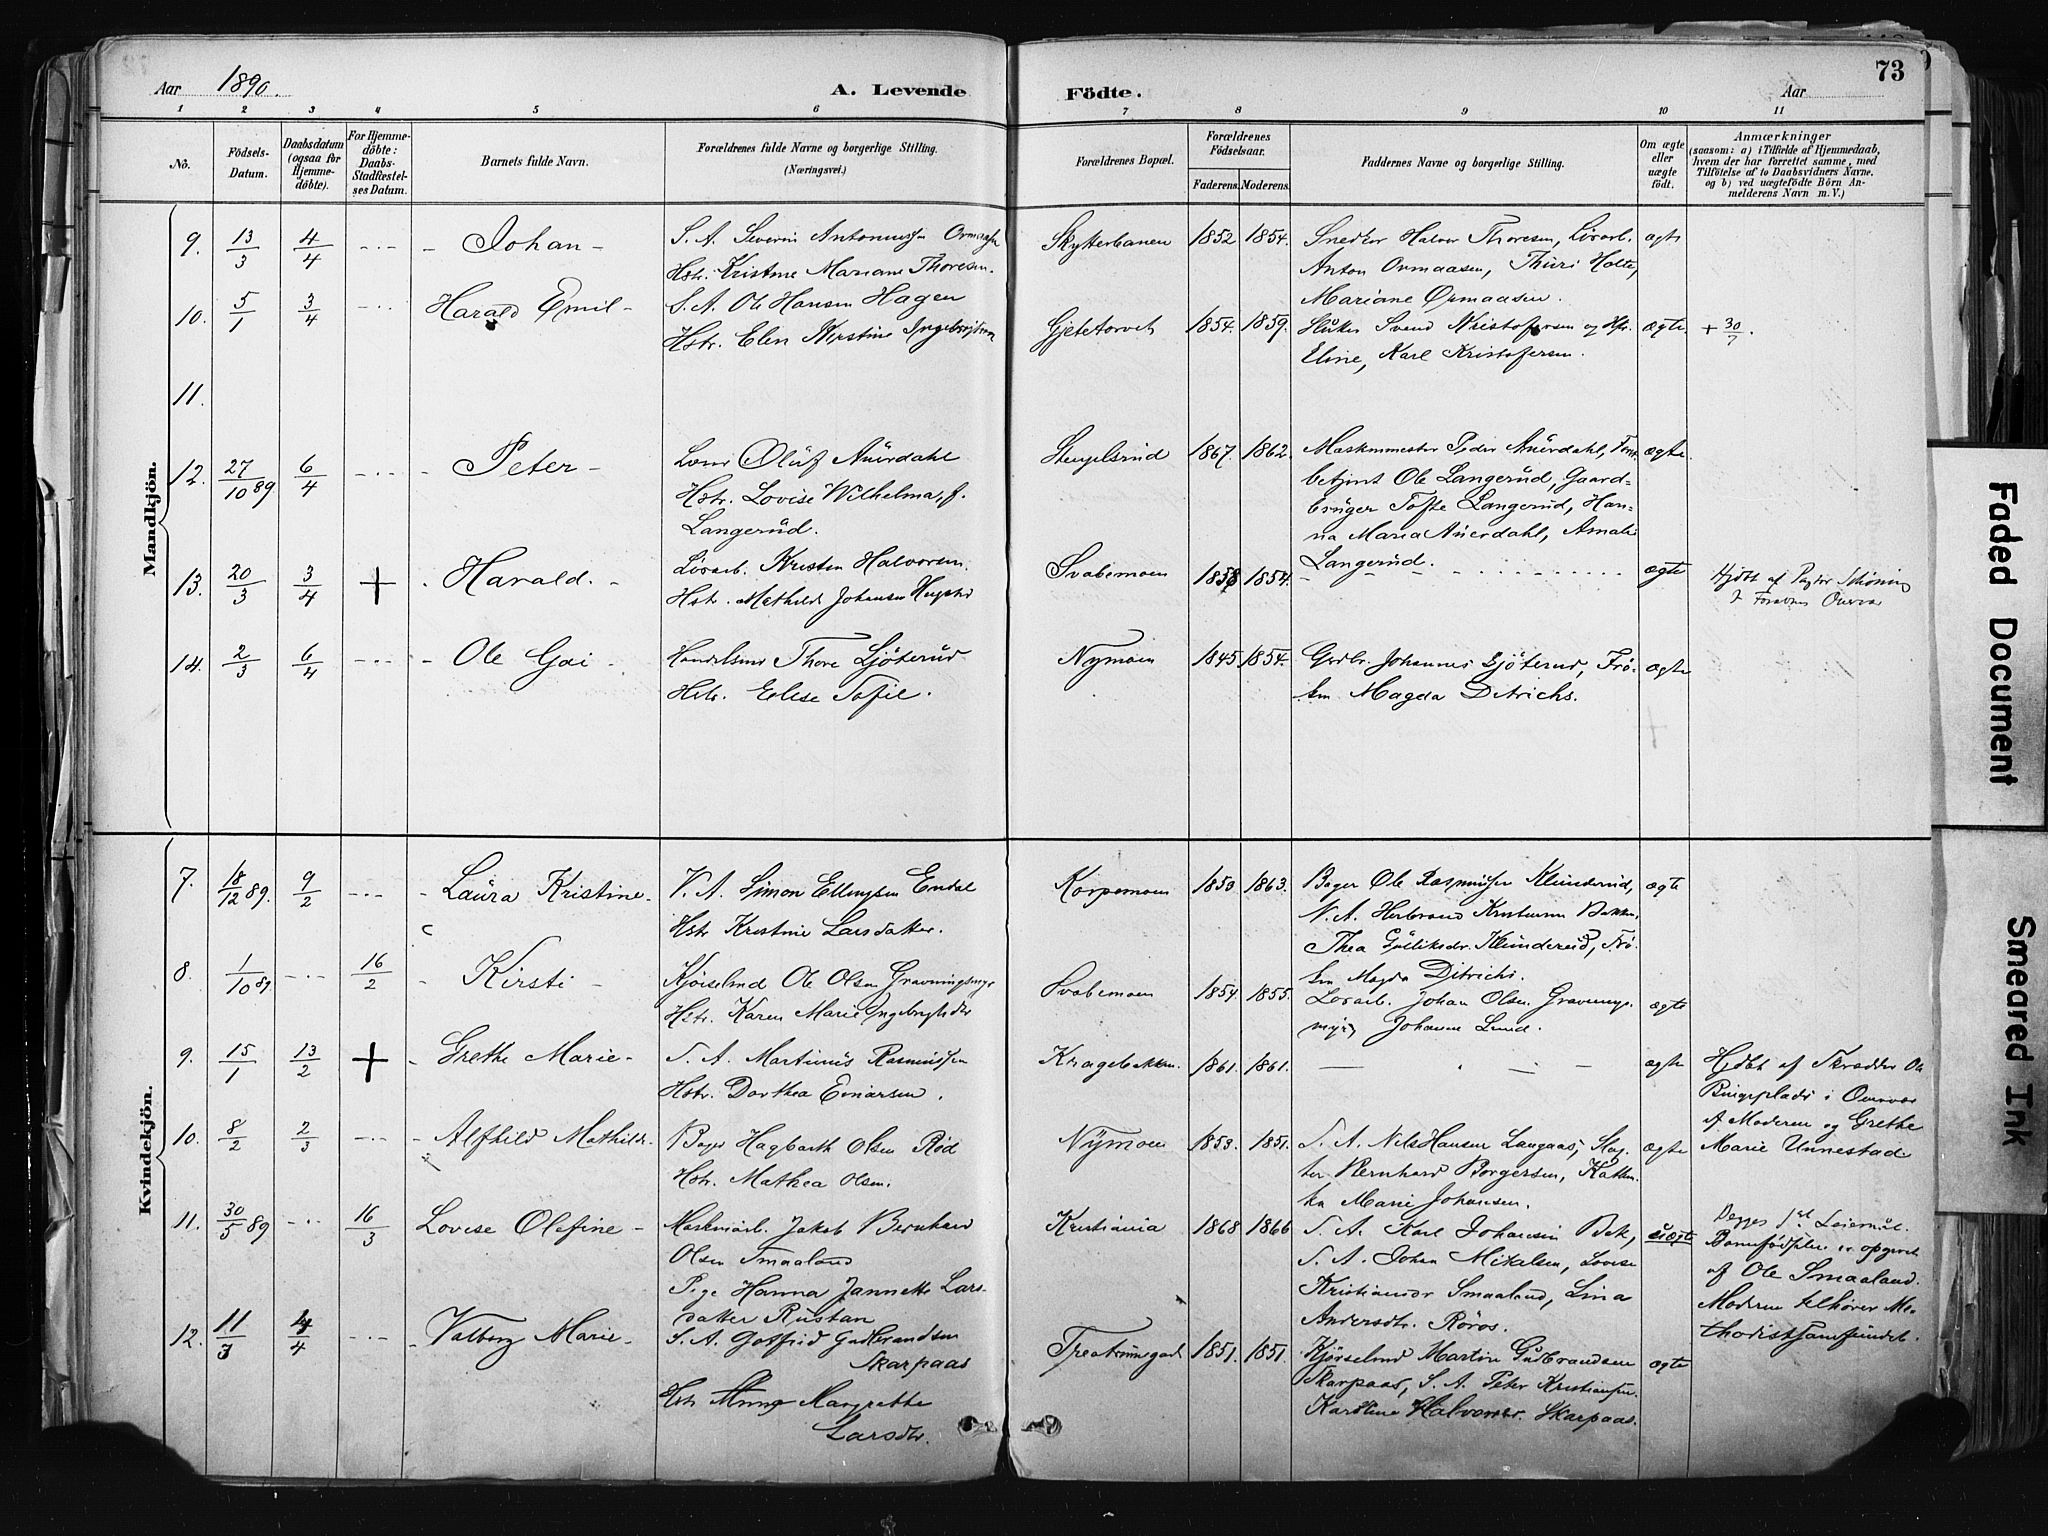 Aar 1890.
A. Levende Födte.
Aar
73
1 2 3 4 5 6 7 8 9 10 11
No.
Födsels-Datum.
Daabsdatum (ogsaa for Hjemme-döbte).
For Hjemme-döbte: Daabs-Stadfæstel-ses Datum.
Barnets fulde Navn.
Forældrenes fulde Navne og borgerlige Stilling. (Næringsvei.)
Forældrenes Bopæl.
Forældrenes Födselsaar.
Faderens. Moderens.
Faddernes Navne og borgerlige Stilling.
Om ægte eller uægte födt.
Anmærkninger
(saasom: a) i Tilfælde af Hjemmedaab, hvem der har forrettet samme, med Tilföielse af to Daabsvidners Navne. og b) ved uægtefödte Börn An-melderens Navn m. V.)
Mandkjön.
9. 13/3 4/4 Johan
S. A. Severin Antonius Ormaasen
Hstr. Kristine Mariane Thoresen.
Skytterbanen 1852 1854.
Snedker Halvor Thoresen, Lösarb.
Anton Ormaasen, Thuri Holte,
Mariane Ormaasen.
ægte
10. 5/1 3/4 Harald Emil
S. A. Ole Hansen Hagen
Hstr. Elen Kirstine Ingebrigtsen
Gjetetorvet 1854. 1859.
Svend Kristofersen og Hstr.
Eline, Karl Kristofersen.
ægte + 30/7.
11.
12. 27/10 89 6/4 Peter
Oluf Aurdahl
Hstr. Lovise Wilhelma, f.
Langerud.
Stengelsrud 1867. 1862.
Maskinmester Peder Aurdahl,
betjent Ole Langerud, Gaard-
bruger Tofte Langerud, Han-
na Maria Aurdahl, Amalie
Langerud.
ægte
13. 20/3 3/4 + Harald.
Lösarb. Kristen Halvorsen
Hstr. Mathilde Johansen
Svabemoen 1858 1854.
ægte
Hjdbt af Pastor Schöning
14. 2/3 6/4 Ole Gai
Handelsmd Thore Ljöterud
Hstr. Elise Tofie.
Nymoen 1845. 1854.
Grdbr. Johannes Ljöterud, Frö-
ken Magda Ditrichs.
ægte
Kvindekjön.
7. 18/12 89. 9/2 Laura Kristine
V. A. Simon Ellingsen Endal
Hstr Kristine Larsdatter.
Korpemoen 1850 1863.
Bager Ole Rasmussen Klunderud,
N. A. Herbrand Kristiansen Bakken,
Thea Gulliksdr. Klunderud, Frö-
ken Magda Ditrichs.
ægte
8. 1/10 89 16/2 Kirsti
Kjöiselmd Ole Olsen Gravningsmyr
Hstr. Karen Marie Ingebrigtsdtr
Svabemoen 1854. 1855.
Lösarb. Johan Olsen Gravnings-
myr, Johanne Lund.
ægte
9. 15/1 13/2 + Grethe Marie
S. A. Martinius Rasmussen
Hstr. Dorthea Einarsen.
Kragebakken. 1861. 1861.
ægte
Hjdbt af Skrædder Ole
Ringsplads i Overvær
af Moderen og Grethe
Marie Unnestad
10. 8/2 2/3 Alfhild Mathilde
Bager Hagbarth Olsen Röd
Hstr. Mathea Olsen.
Nymoen 1853. 1851.
S. A. Nils Hansen Langaas, Slag-
ter Bernhard Borgersen,
Marie Johansen.
ægte
11. 30/5 89 16/3 Lovise Olefine
Maskinarb. Jakob Bernhard
Olsen Smaaland
Pige Hanna Jannette Lars-
datter Rustan
Kristiania 1868 1866
S. A. Karl Johansen Bek,
S. A. Johan Mikalsen, Lovise
Kristiansdr Smaaland, Lina
Andersdtr. Röros.
uægte
Begges 1ste Leiermaal.
Barnefödselen er opgivet
af Ole Smaaland.
Moderen tilhörer Me-
thodistsamfundet.
12. 11/3 4/4 Valborg Marie
S. A. Gotfrid Gudbrandsen
Skarpaas
Hstr Anna Margrethe
Larsdtr.
1851. 1851.
Kjörselmd Martin Gudbrandsen
Skarpaas, S. A. Peter Kristiansen.
Karoline Halvorsdr. Skarpaas.
ægte
Faded Document
Smeared Ink